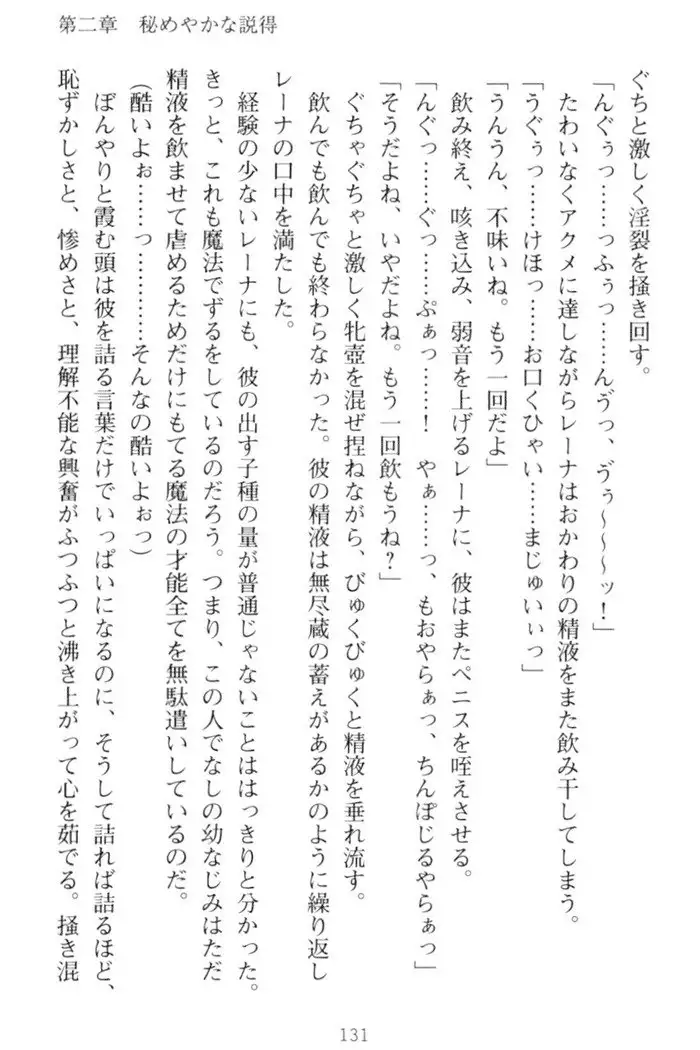 第二章　秘めやかな説得
ぐちと激しく淫裂を掻き回す。
「んぐぅっ……っふぅっ……んゔっ、ゔぅ～～～ッ！」
　たわいなくアクメに達しながらレーナはおかわりの精液をまた飲み干してしまう。
「うぐぅっ……けほっ……お口くひゃい……まじゅいぃっ」
「うんうん、不味いね。もう一回だよ」
　飲み終え、咳き込み、弱音を上げるレーナに、彼はまたペニスを咥えさせる。
「んぐっ……ぐっ……ぷぁっ……！　やぁ……っ、もおやらぁっ、ちんぽじるやらぁっ」
「そうだよね、いやだよね。もう一回飲もうね？」
　ぐちゃぐちゃと激しく牝壺を混ぜ捏ねながら、びゅくびゅくと精液を垂れ流す。
　飲んでも飲んでも終わらなかった。彼の精液は無尽蔵の蓄えがあるかのように繰り返し
レーナの口中を満たした。
　経験の少ないレーナにも、彼の出す子種の量が普通じゃないことははっきりと分かった。
きっと、これも魔法でずるをしているのだろう。つまり、この人でなしの幼なじみはただ
精液を飲ませて虐めるためだけにもてる魔法の才能全てを無駄遣いしているのだ。
（酷いよぉ……っ…………そんなの酷いよぉっ）
　ぼんやりと霞む頭は彼を詰る言葉だけでいっぱいになるのに、そうして詰れば詰るほど、
恥ずかしさと、惨めさと、理解不能な興奮がふつふつと沸き上がって心を茹でる。掻き混
131